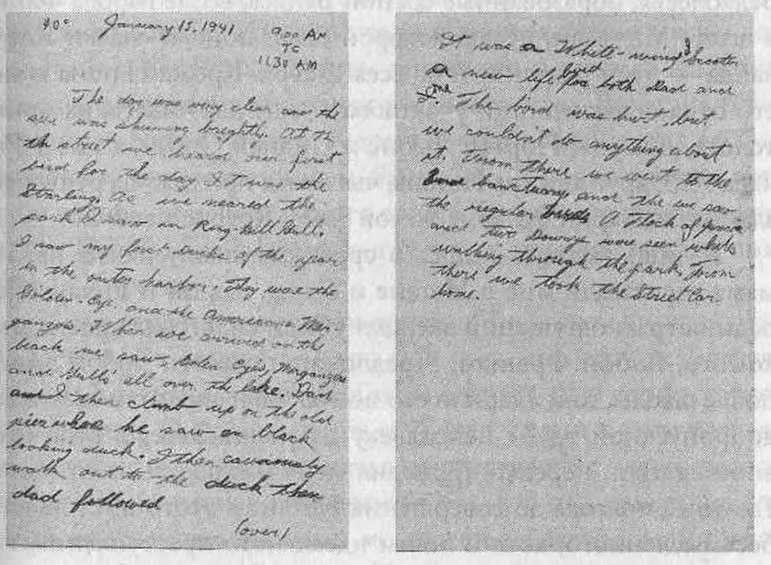 40° January 15, 1941 9:00 AM
TO
11:30 AM
The day was very clear and the
sun was shining brightly. At 7th
th street we heard our first
bird for the day. It was the
Starling. As we neared the
park I saw an Ring-bill Gull.
I saw my first ducks of the year
in the outer harbor. They was the
Golden-Eye and the American Mer-
gansers. When we arrived on the
beach we saw Golden Eyes, Mergansers
and Gulls all over the lake. Dad
and I then climb up on the old
pier where he saw an black
looking duck. I then cautiously
walk out to the duck then
dad followed
(over)
It was a White-wing Scooter
a new life bird for both Dad and
I. The bird was hurt, but
we couldn't do anything about
it. From there we went to the
sanctuary and the we saw
the regular birds. A flock of Juncos
and two Downys were seen while
walking through the park. From
there we took the street car
home.